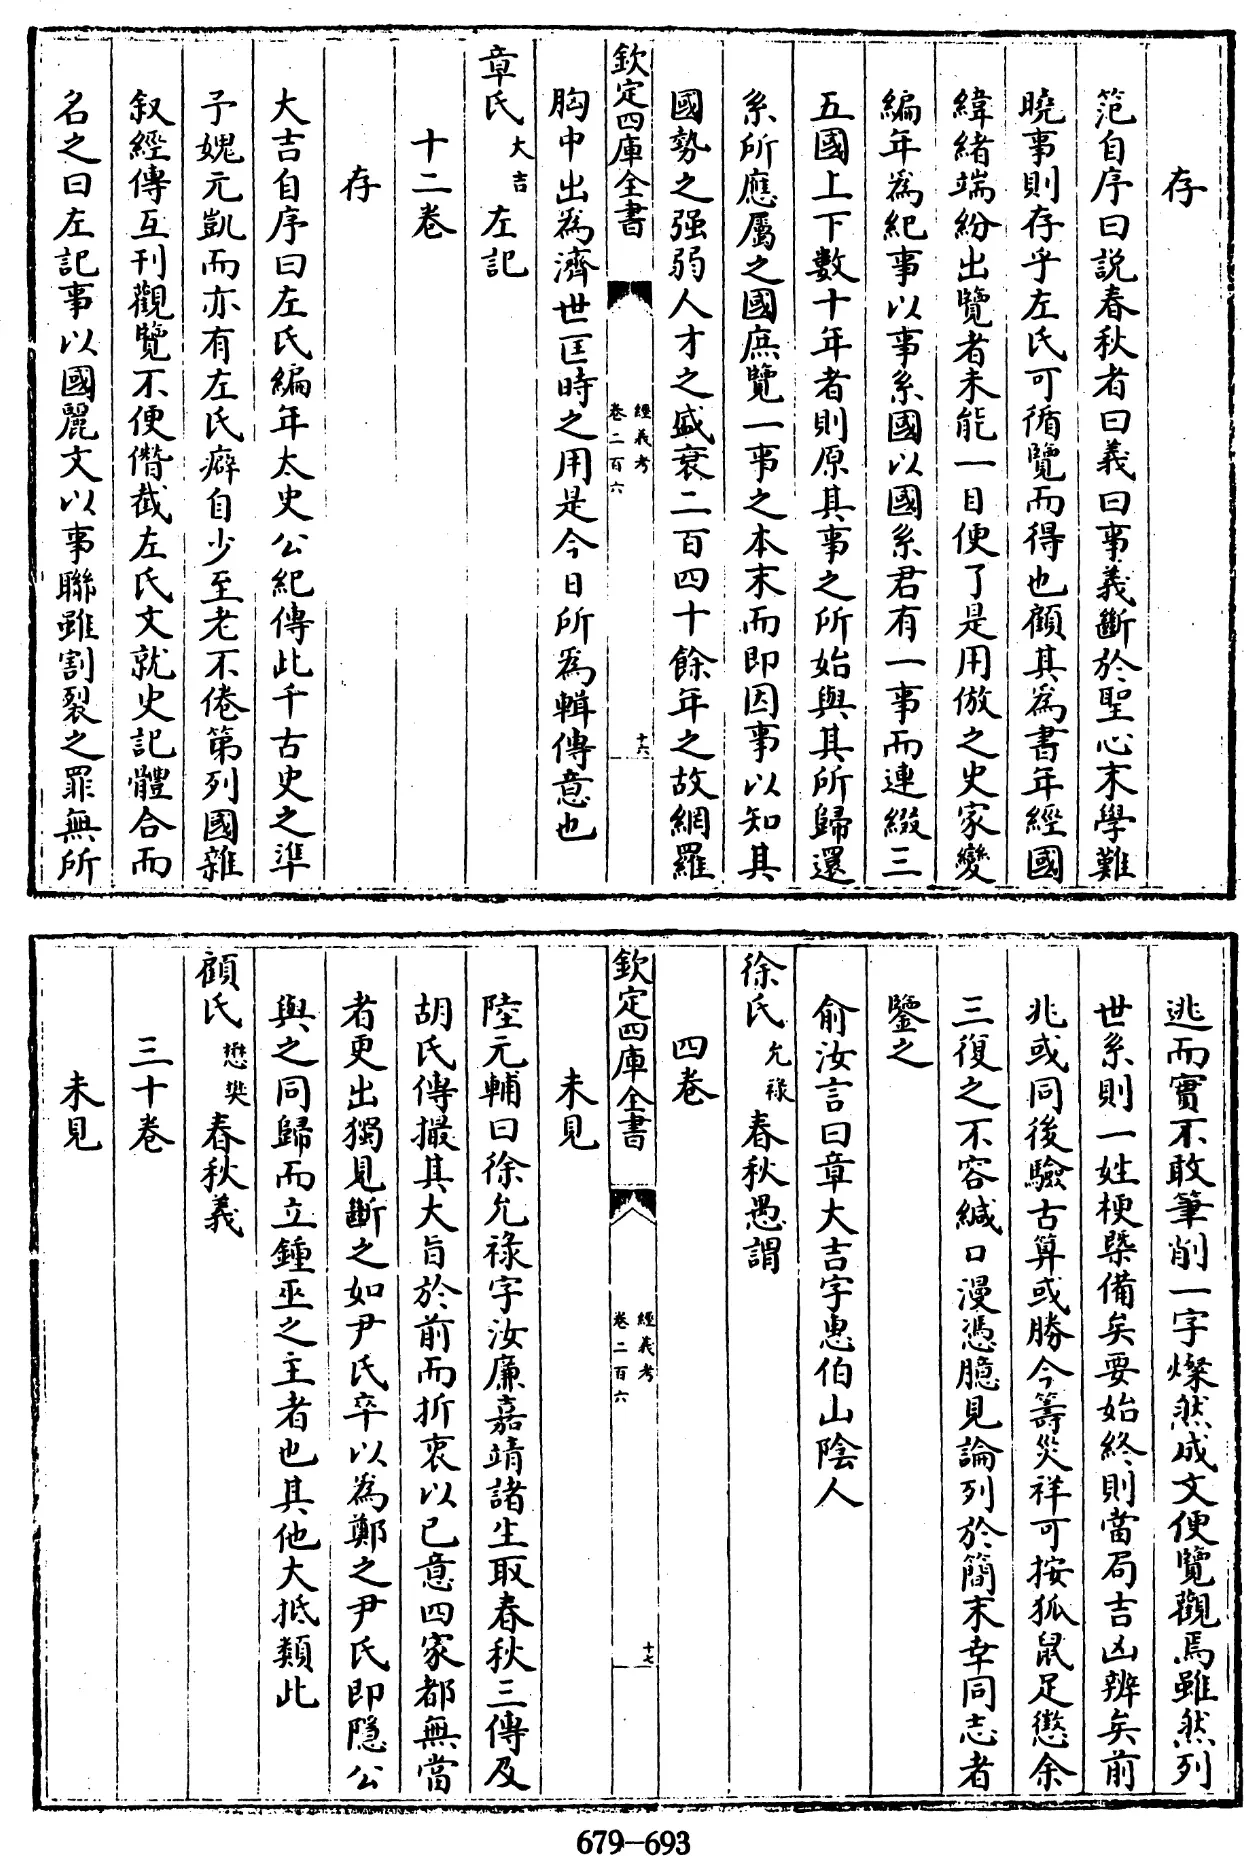 存
范自序曰説春秋者曰義曰事義斷於聖心末學難
曉事則存乎左氏可循覽而得也顧其為書年經國
緯緒端紛出覽者未能一目便了是用倣之史家變
編年為紀事以事系國以國系君有一事而連綴三
五國上下數十年者則原其事之所始與其所歸還
系所應屬之國庶覽一事之本末而即因事以知其
國勢之强弱人才之盛衰二百四十餘年之故網羅
欽定四庫全書
經義考
卷二百六
十六
胸中出為濟世匡時之用是今日所為輯傳意也
章氏大吉左記
十二卷
存
大吉自序曰左氏編年太史公紀傳此千古史之準
予媿元凱而亦有左氏癖自少至老不倦第列國雜
叙經傳互刊觀覽不便僭截左氏文就史記體合而
名之曰左記事以國麗文以事聯雖割裂之罪無所
逃而實不敢筆削一字燦然成文便覽觀焉雖然列
世系則一姓梗槩備矣要始終則當局吉凶辨矣前
兆或同後驗古算或勝今籌災祥可按狐鼠足懲余
三復之不容緘口漫憑臆見論列於簡末幸同志者
鑒之
俞汝言曰章大吉字惠伯山陰人
徐氏允祿春秋愚謂
四卷
欽定四庫全書
經義考
卷二百六
十七
未見
陸元輔曰徐允祿字汝廉嘉靖諸生取春秋三傳及
胡氏傳撮其大旨於前而折衷以已意四家都無當
者更出獨見斷之如尹氏卒以為鄭之尹氏即隱公
與之同歸而立鍾巫之主者也其他大抵類此
顧氏懋樊春秋義
三十卷
未見
679-693